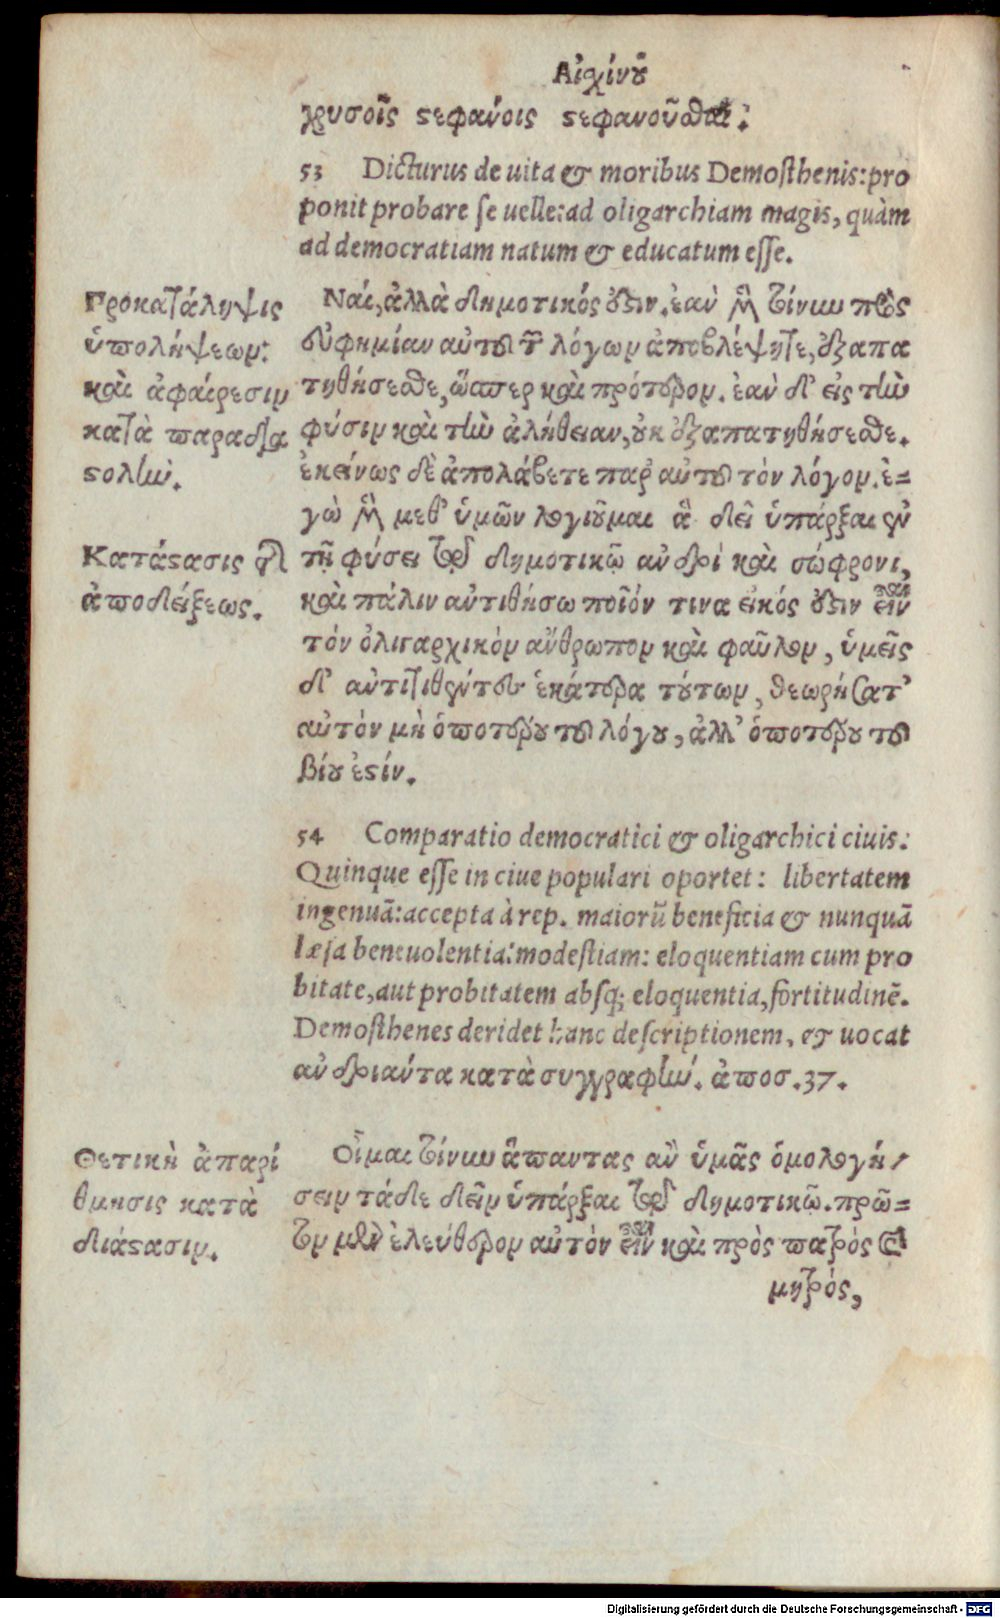 Αἰχίνου
χρυσοῖς στεφάνοις στεφανοῦσθαι;
53 Dicturus de uita & moribus Demosthenis: pro
ponit probare se uelle: ad oligarchiam magis, quàm
ad democratiam natum & educatum esse.
Προκατάληψις
ὑπολήψεως:
καὶ ἀφαίρεσις
κατὰ παραδια
στολὴν.
Ναί, ἀλλὰ δημοτικός ἐστιν. ἐὰν μὲν τοίνυν πρὸς
εὐφημίαν αὐτοῦ τῶν λόγων ἀποβλέψητε, ἐξαπα
τηθήσεσθε, ὥσπερ καὶ πρότερον. ἐὰν δ' εἰς τὴν
φύσιν καὶ τὴν ἀλήθειαν, οὐκ ἐξαπατηθήσεσθε.
ἐκείνως δὲ ἀπολάβετε παρ' αὐτοῦ τὸν λόγον. ἐ=
γὼ μὲν μεθ' ὑμῶν λογιοῦμαι ἃ δεῖ ὑπάρξαι ἐν
Κατάστασις τῆς
ἀποδείξεως.
τῇ φύσει τῷ δημοτικῷ ἀνδρὶ καὶ σώφρονι,
καὶ πάλιν ἀντιθήσω ποῖόν τινα εἰκός ἐστιν εἶναι
τὸν ὀλιγαρχικὸν ἄνθρωπον καὶ φαῦλον, ὑμεῖς
δ' ἀντιτιθέντες ἑκάτερα τούτων, θεωρήσατ'
αὐτὸν μὴ ὁποτέρου τοῦ λόγου, ἀλλ' ὁποτέρου τοῦ
βίου ἐστίν.
54 Comparatio democratici & oligarchici ciuis:
Quinque esse in ciue populari oportet: libertatem
ingenuã: accepta à rep. maiorũ beneficia & nunquã
læsa beneuolentia: modestiam: eloquentiam cum pro
bitate, aut probitatem absq; eloquentia, fortitudinẽ.
Demosthenes deridet hanc descriptionem, & uocat
ἀνδριάντα κατὰ συγγραφὴν. ἀποσ. 37.
Θετικὴ ἀπαρί
θμησις κατὰ
διάστασιν.
Οἶμαι τοίνυν ἅπαντας ἂν ὑμᾶς ὁμολογή/
σειν τάδε δεῖν ὑπάρξαι τῷ δημοτικῷ. πρῶ=
τον μὲν ἐλεύθερον αὐτὸν εἶναι καὶ πρὸς πατρὸς καὶ
μητρὸς,
Digitalisierung gefördert durch die Deutsche Forschungsgemeinschaft - DFG